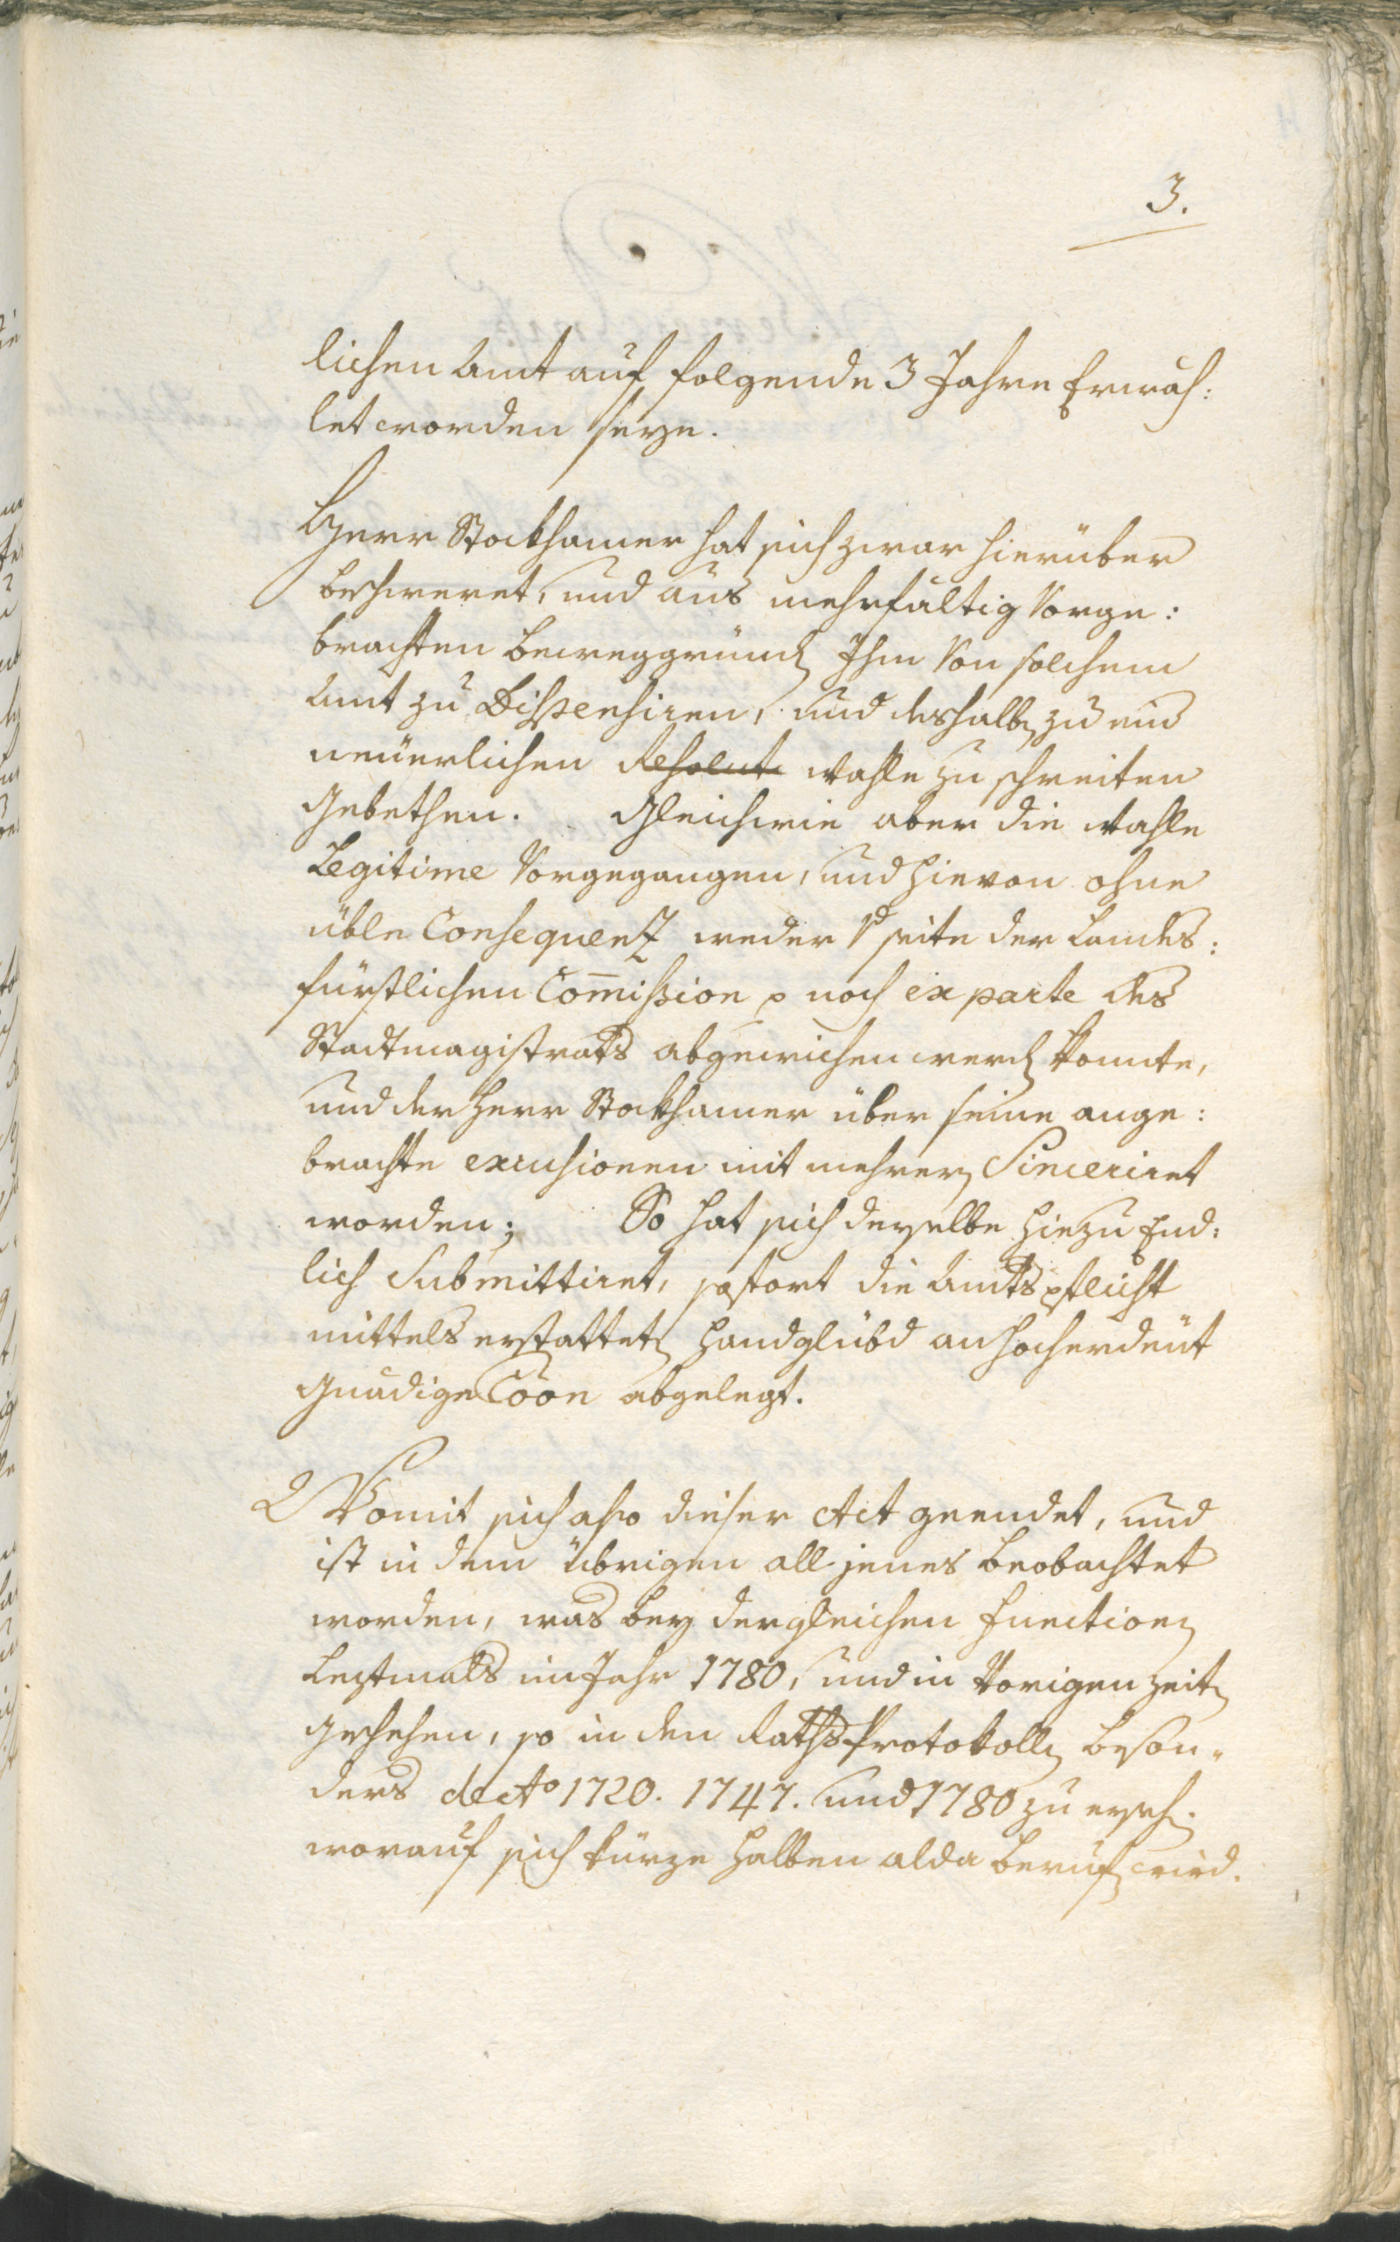 3.
lichen Amt auf folgende 3 Jahre Erwäh:
let worden seye.
Herr Stockhamer hat sich zwar hierüber
beschweret, und aus mehrfältig Vorge:
brachten Beweggründen Ihm Von solchem
Amt zu Dispensiren, und deshalben zu ein
neüerlichen Resolut Wahle zu schreiten
gebethen. Gleichwie aber die Wahle
Legitime Vorgegangen, und hievon ohne
üble Consequenz weder seite der Landes:
fürstlichen Com̄ission noch ex parte des
Stadtmagistrats abgewichen werden konnte,
und der Herr Stockhamer über seine ange:
brachte excusionen mit mehreren Sinceriret
worden; So hat sich derselbe hiezu End:
lich Submittiret, sofort die Amtspflicht
mittels erstatteten Handglübd an hocherdeüt
gnädige Cōōn abgelegt.
Womit sich also dieser Act geendet, und
ist in dem übrigen all jenes beobachtet
worden, was bey dergleichen Functionen
leztmals im Jahr 1780, und in Vorigen Zeiten
geschehen, so in den Raths Protokollen beson„
ders de Ao 1720. 1747. und 1780 zu ersehen.
worauf sich kürze halben alda berufen wird.